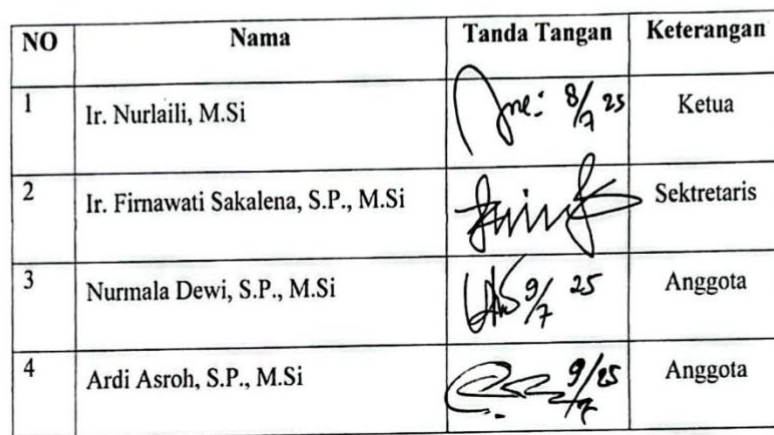 NO Nama Tanda Tangan Keterangan
1 Ir. Nurlaili, M.Si 8/7 25 Ketua
2 Ir. Firnawati Sakalena, S.P., M.Si Sektretaris
3 Nurmala Dewi, S.P., M.Si 9/7 25 Anggota
4 Ardi Asroh, S.P., M.Si 9/7 25 Anggota